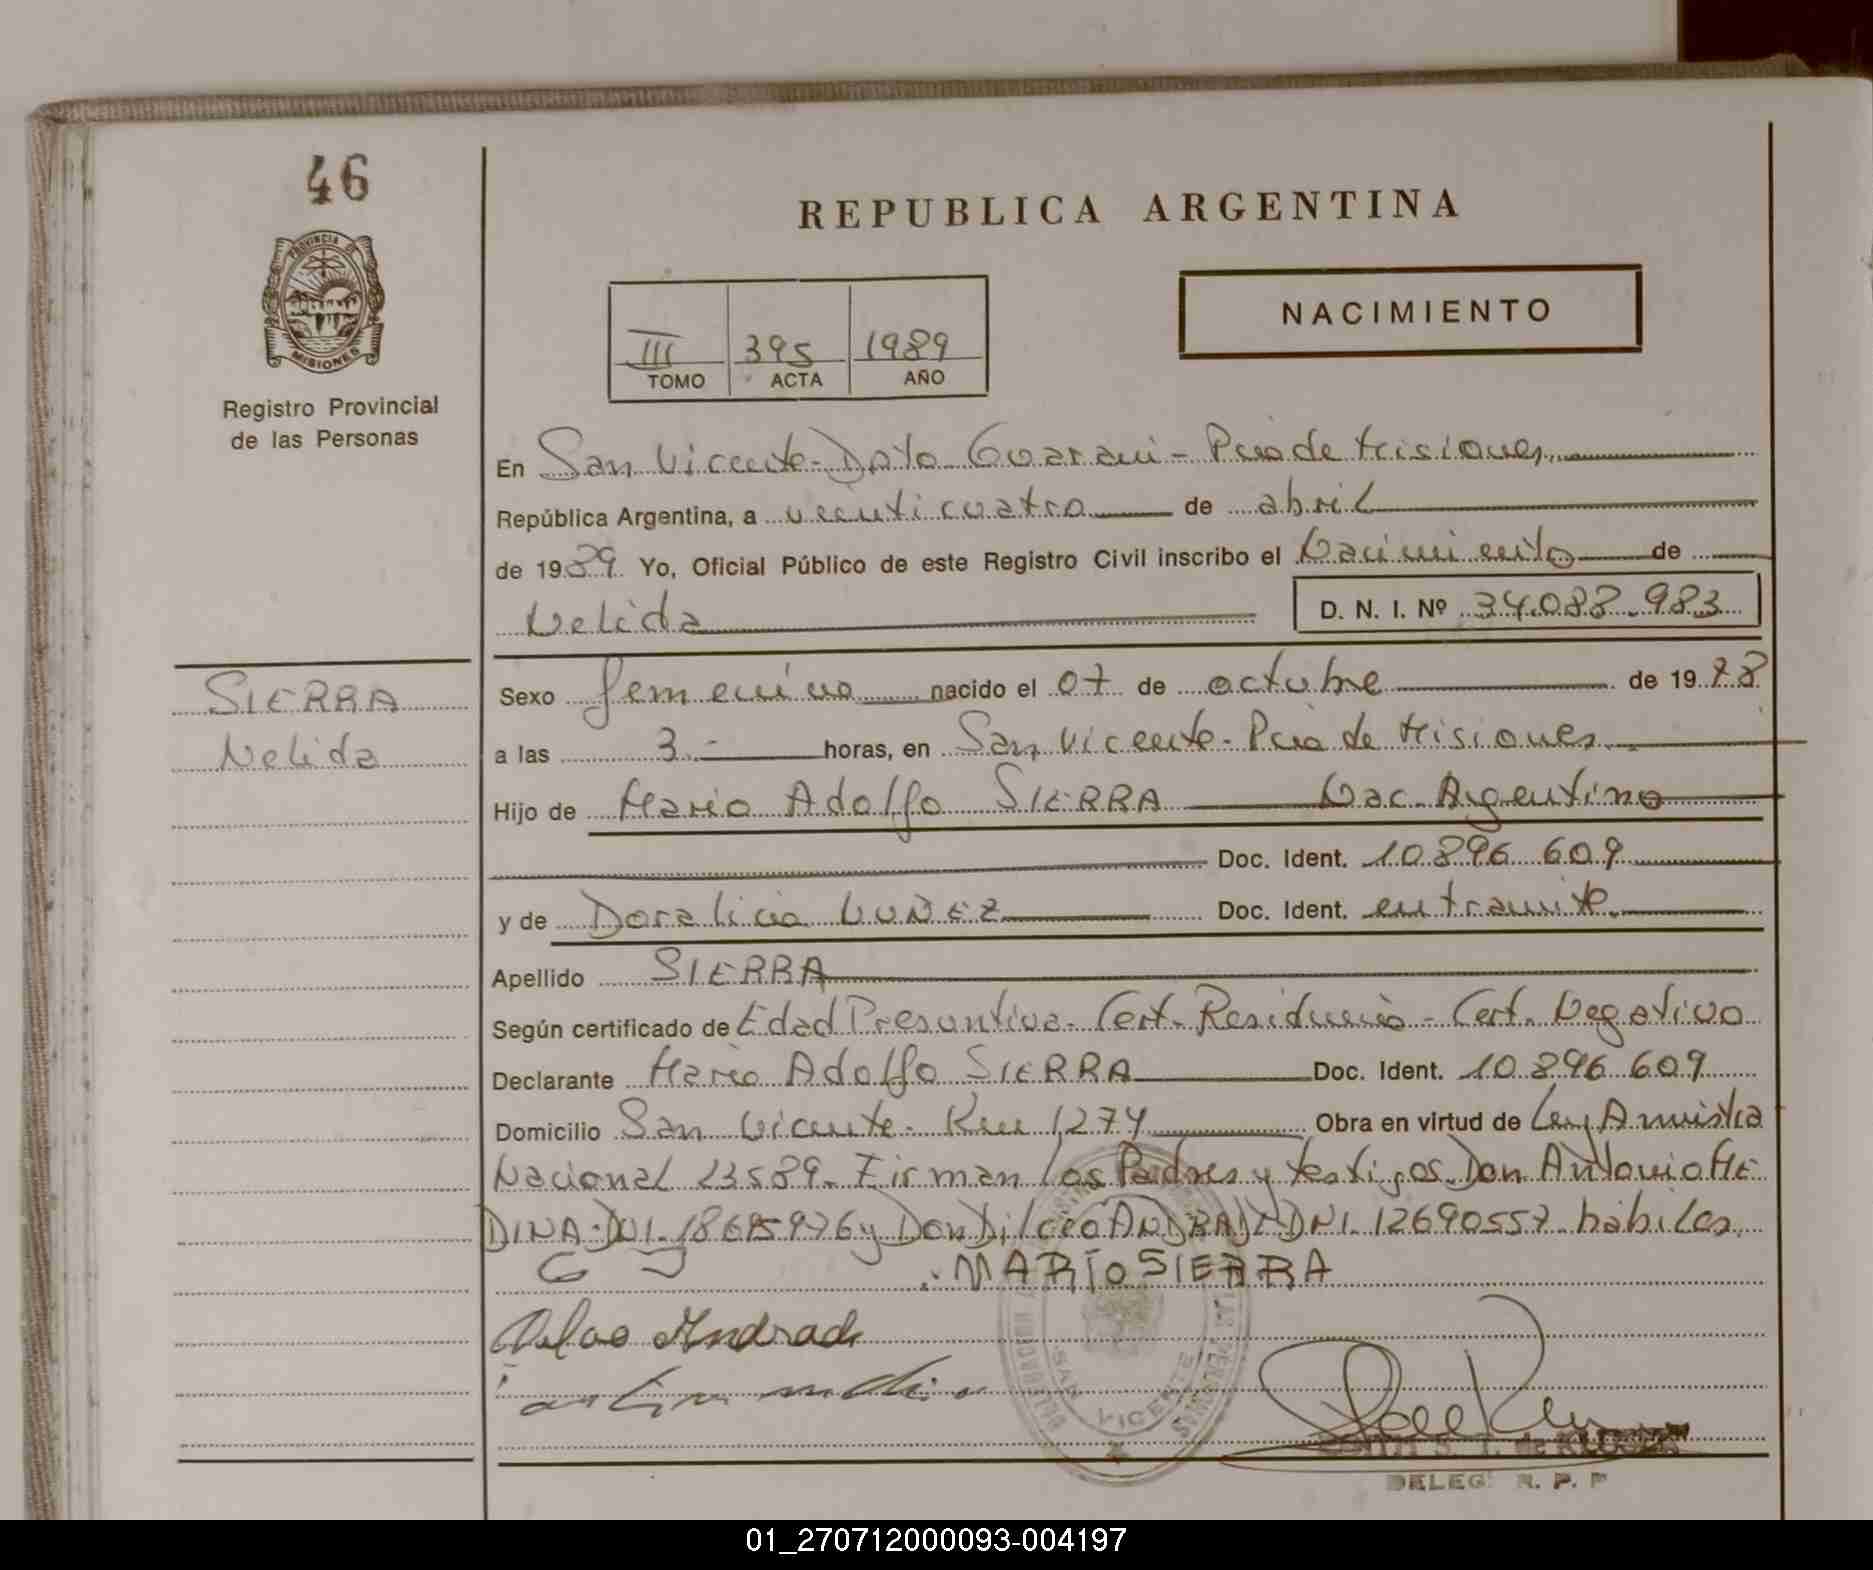 46
PROVINCIA DE
MISIONES
Registro Provincial
de las Personas
REPUBLICA ARGENTINA
NACIMIENTO
III 395 1989
TOMO ACTA AÑO
En San Vicente - Dpto Guarani - Pcia de Misiones
República Argentina, a veinticuatro de abril
de 1989 Yo, Oficial Público de este Registro Civil inscribo el Nacimiento de
Nelida D. N. I. Nº 34.088.983
SIERRA
Nelida
Sexo femenino nacido el 07 de octubre de 1988
a las 3.- horas, en San Vicente - Pcia de Misiones
Hijo de Mario Adolfo SIERRA Nac. Argentino
Doc. Ident. 10.896.609
y de Doralicia NUÑEZ Doc. Ident. en tramite.
Apellido SIERRA
Según certificado de Edad Presuntiva - Cert. Residencia - Cert. Negativo
Declarante Mario Adolfo SIERRA Doc. Ident. 10.896.609
Domicilio San Vicente - Km 1274 Obra en virtud de Ley Amnistia
Nacional 23589. Firman los Padres y testigos Don Antonio ME
DINA DNI 18695976 y Don Dilceo ANDRADE DNI 12690557 habiles.
MARIO SIERRA
Andrade
SAN VICENTE
DELEG. R. P. P
01_270712000093-004197